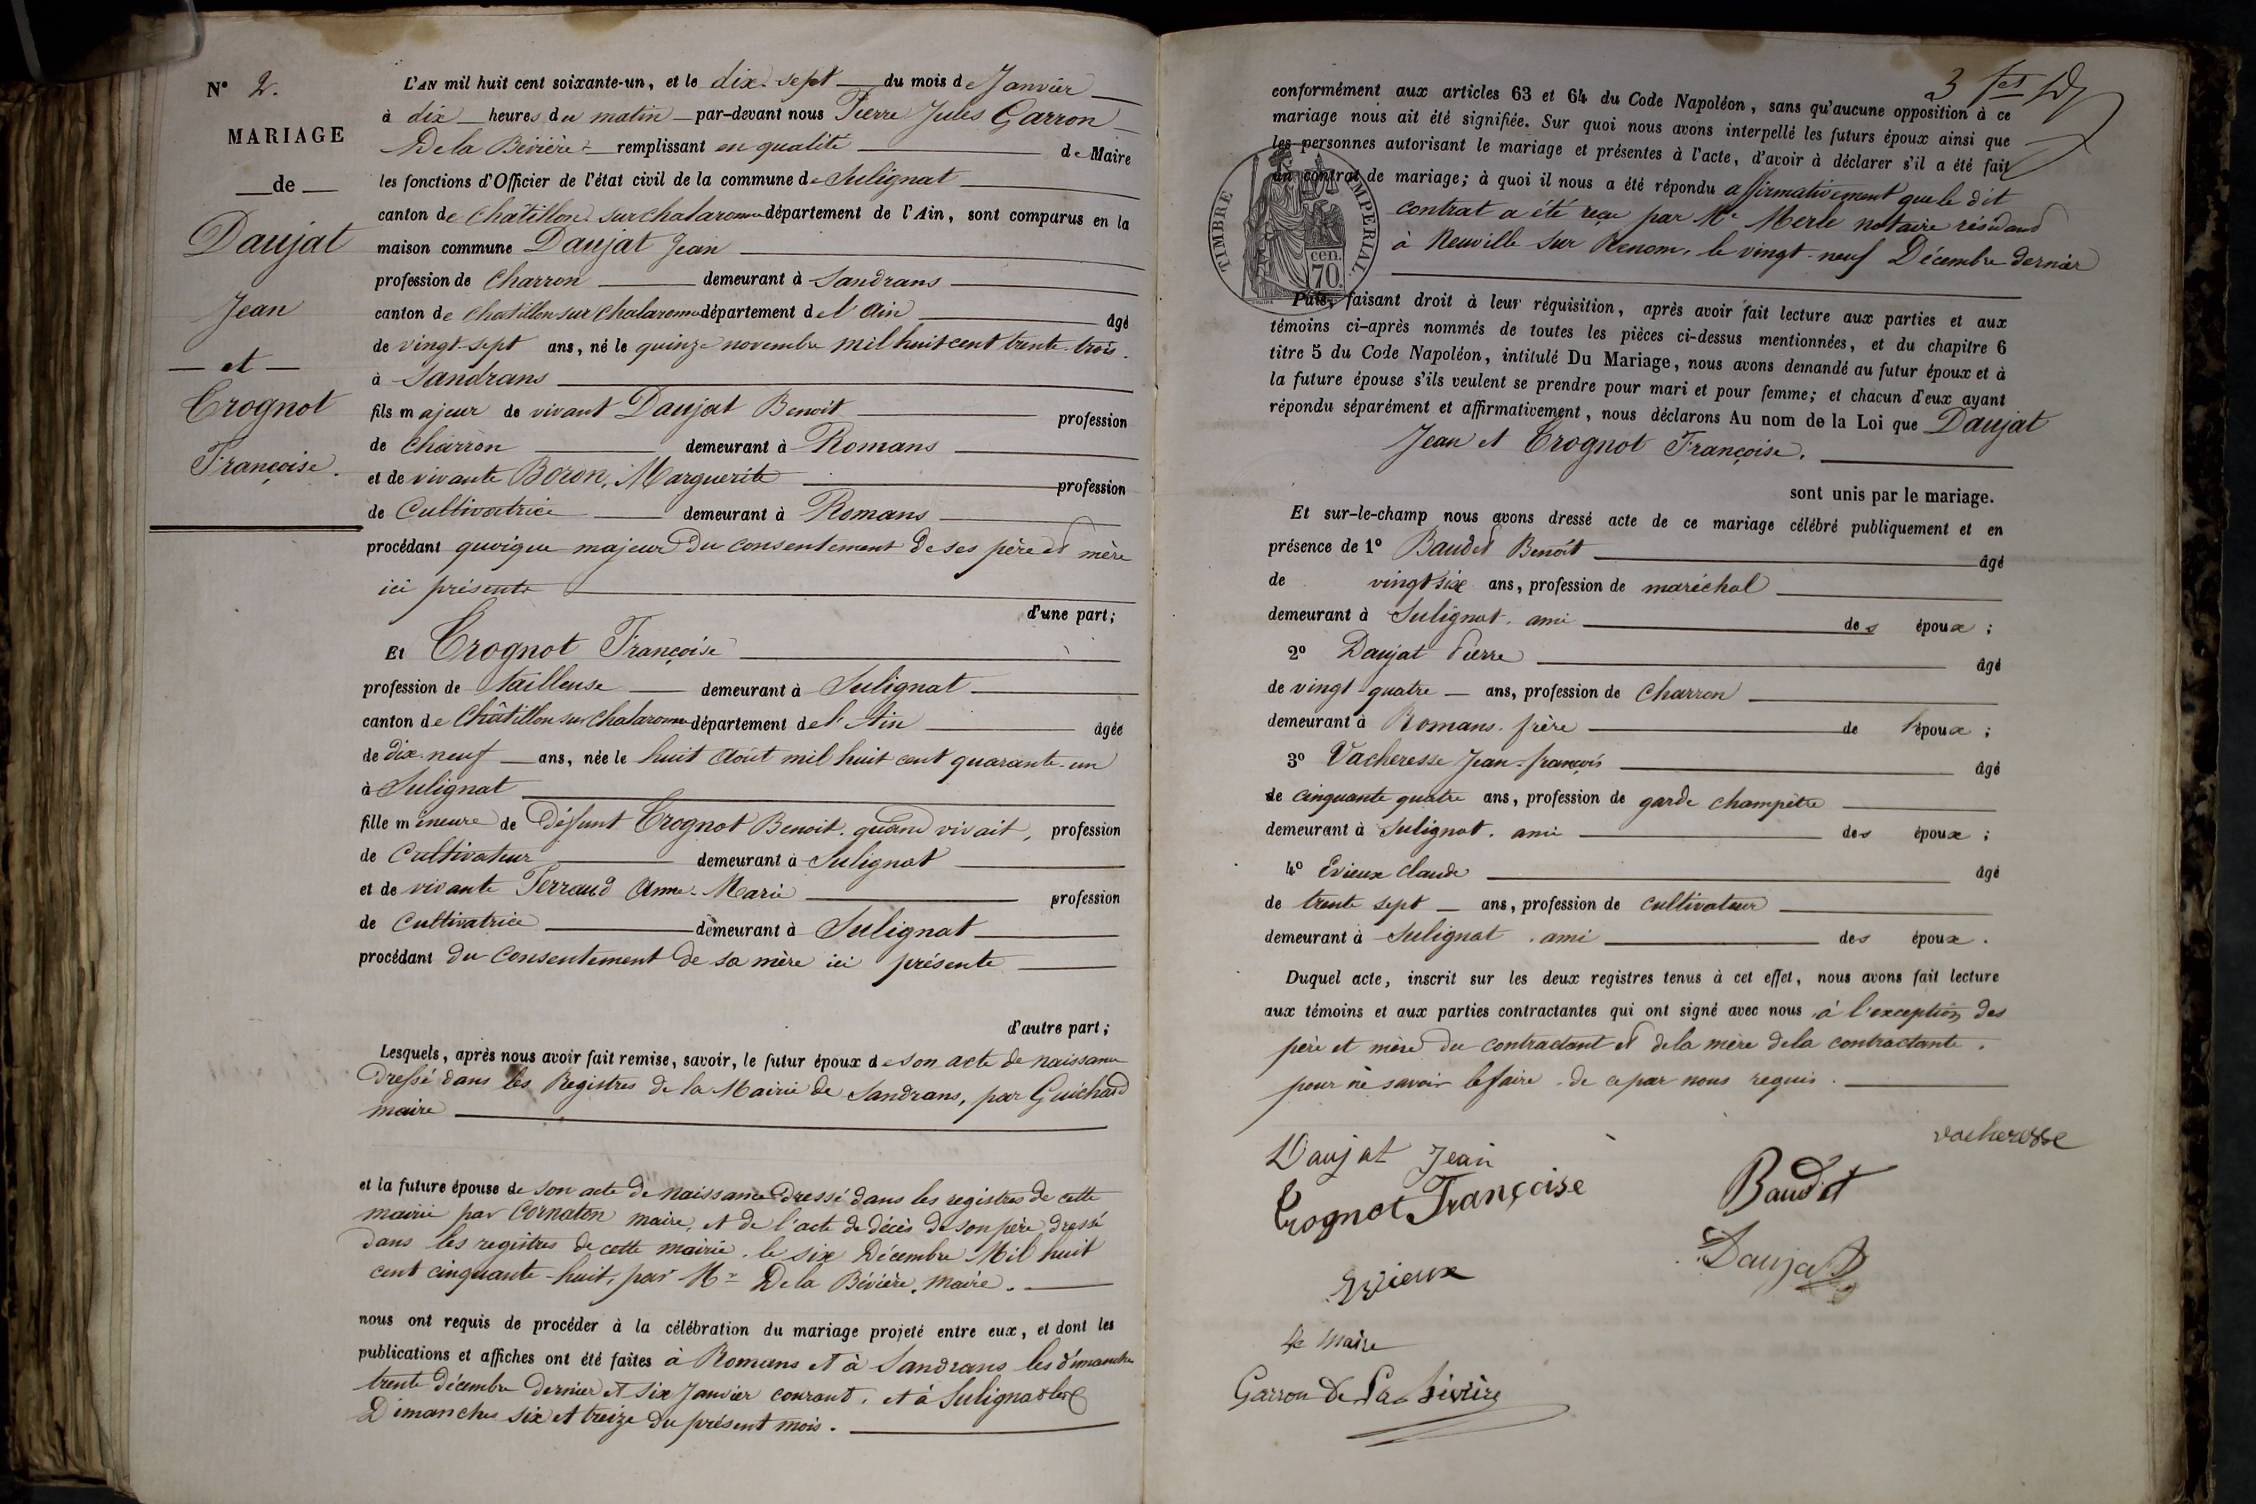 N° 2.
MARIAGE
de
Daujat
Jean
et
Crognot
Françoise.
L'AN mil huit cent soixante-un, et le dix-sept du mois de Janvier
à dix heures du matin par-devant nous Pierre Jules Garron
De la Bévière remplissant en qualité de Maire
les fonctions d'Officier de l'état civil de la commune de Sulignat
canton de Châtillon sur Chalaronne département de l'Ain, sont comparus en la
maison commune Daujat Jean
profession de Charron demeurant à Sandrans
canton de Chatillon sur Chalaronne département de l'Ain âgé
de vingt-sept ans, né le quinze novembre mil huit cent trente-trois.
à Sandrans
fils majeur de vivant Daujat Benoit profession
de charron demeurant à Romans
et de vivante Boron, Marguerite profession
de Cultivatrice demeurant à Romans
procédant quoique majeur du consentement de ses père et mère
ici présents
d'une part;
Et Crognot Françoise
profession de tailleuse demeurant à Sulignat
canton de Châtillon sur Chalaronne département de l'Ain âgée
de dix-neuf ans, née le huit Août mil huit cent quarante-un
à Sulignat
fille mineure de défunt Crognot Benoit quand vivait, profession
de Cultivateur demeurant à Sulignat
et de vivante Ferraud Anne-Marie profession
de Cultivatrice demeurant à Sulignat
procédant du consentement de sa mère ici présente
d'autre part;
Lesquels, après nous avoir fait remise, savoir, le futur époux de son acte de naissance
dressé dans les Registres de la Mairie de Sandrans, par Guichard
maire
et la future épouse de son acte de naissance dressé dans les registres de cette
mairie par Cornaton maire, et de l'acte de décès de son père dressé
dans les registres de cette mairie le six Décembre Mil huit
cent cinquante-huit, par Mr De la Bévière, maire.
nous ont requis de procéder à la célébration du mariage projeté entre eux, et dont les
publications et affiches ont été faites à Romans et à Sandrans les dimanches
trente décembre dernier et six Janvier courant, et à Sulignat les
Dimanches six et treize du présent mois.
3
conformément aux articles 63 et 64 du Code Napoléon, sans qu'aucune opposition à ce
mariage nous ait été signifiée. Sur quoi nous avons interpellé les futurs époux ainsi que
les personnes autorisant le mariage et présentes à l'acte, d'avoir à déclarer s'il a été fait
un contrat de mariage; à quoi il nous a été répondu affirmativement que le dit
contrat a été reçu par Me Merle notaire résidant
à Neuville sur Renom, le vingt-neuf Décembre dernier
TIMBRE IMPERIAL
cen.
70.
Puis, faisant droit à leur réquisition, après avoir fait lecture aux parties et aux
témoins ci-après nommés de toutes les pièces ci-dessus mentionnées, et du chapitre 6
titre 5 du Code Napoléon, intitulé Du Mariage, nous avons demandé au futur époux et à
la future épouse s'ils veulent se prendre pour mari et pour femme; et chacun d'eux ayant
répondu séparément et affirmativement, nous déclarons Au nom de la Loi que Daujat
Jean et Crognot Françoise.
sont unis par le mariage.
Et sur-le-champ nous avons dressé acte de ce mariage célébré publiquement et en
présence de 1° Baudet Benoît âgé
de vingt six ans, profession de maréchal
demeurant à Sulignat. ami des époux;
2° Daujat Pierre âgé
de vingt-quatre ans, profession de charron
demeurant à Romans. frère de l'époux;
3° Vacheresse Jean-françois âgé
de cinquante quatre ans, profession de garde champêtre
demeurant à Sulignat. ami des époux;
4° Evieux Claude âgé
de trente sept ans, profession de cultivateur
demeurant à Sulignat. ami des époux.
Duquel acte, inscrit sur les deux registres tenus à cet effet, nous avons fait lecture
aux témoins et aux parties contractantes qui ont signé avec nous à l'exception des
père et mère du contractant et de la mère de la contractante.
pour ne savoir le faire de ce par nous requis.
Daujat Jean
vacheresse
Crognot Françoise
Baudet
Daujat
Evieux
Le Maire
Garron de La Bévière